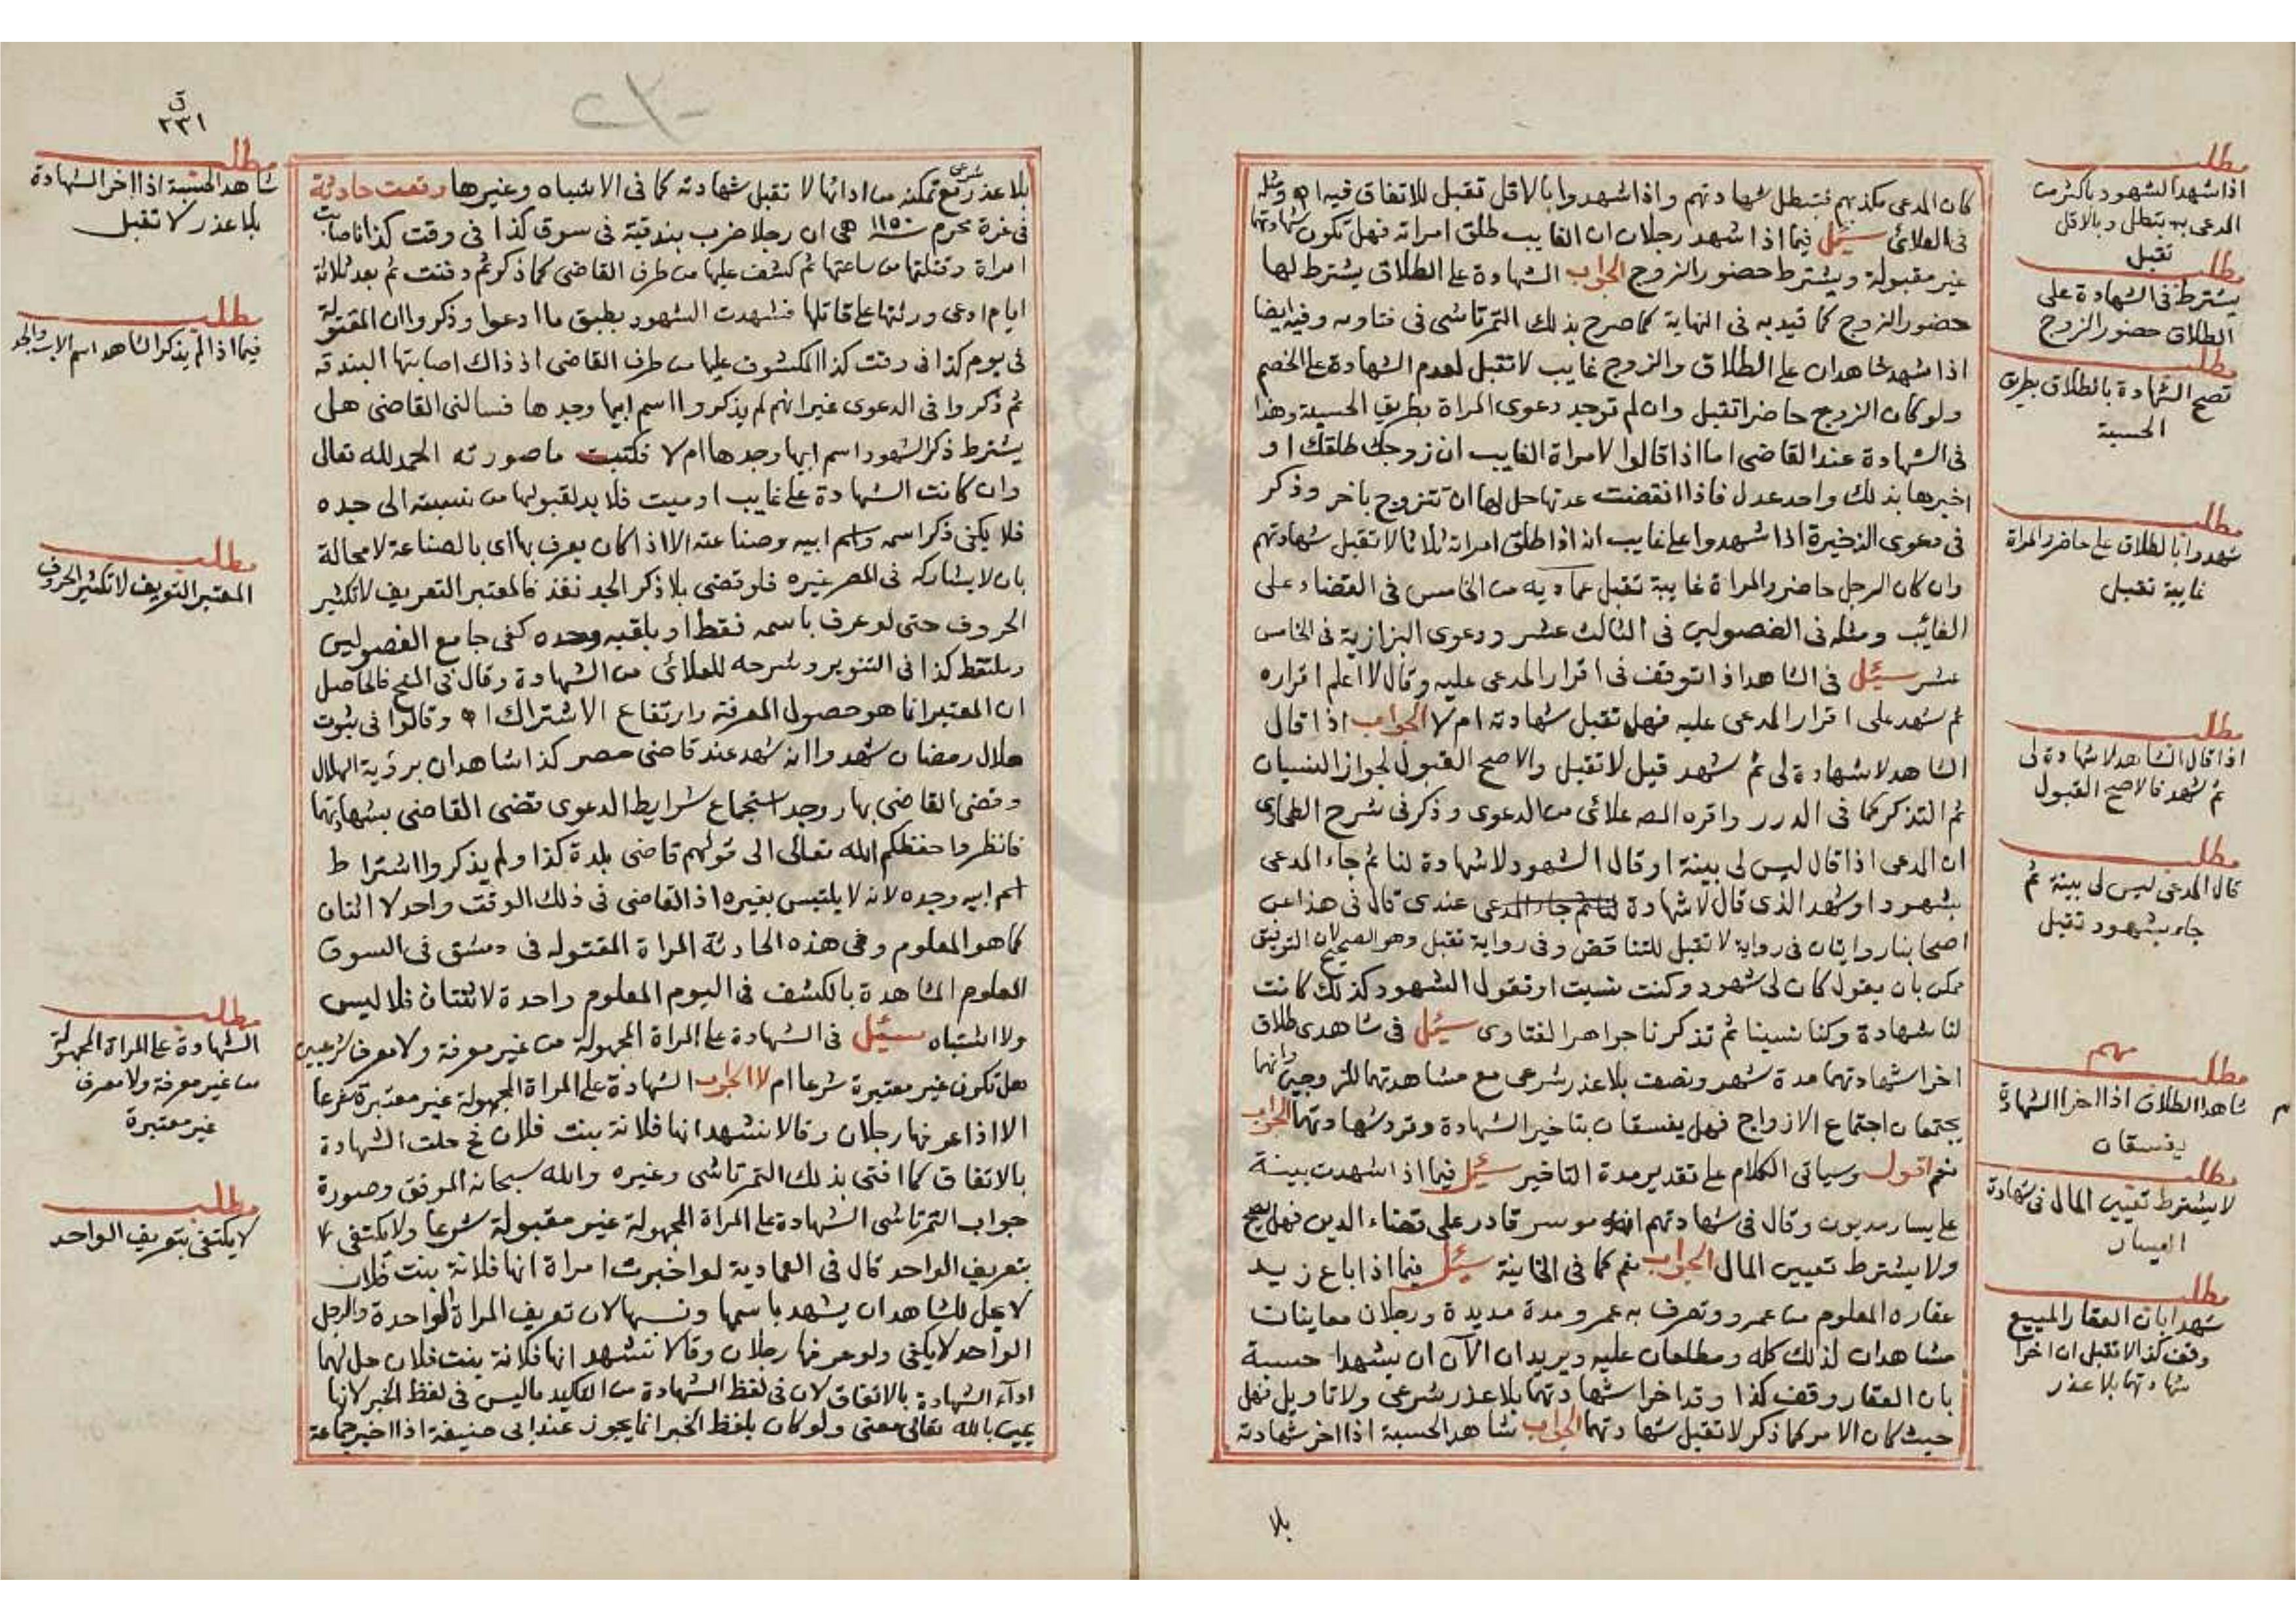 كان المدعى مكذبهم فتبطل شهادتهم واذا شهدوا بالاقل تقبل للاتفاق فيه اه ومثله
فى العلائى سئل فيما اذا شهد رجلان ان الغايب طلق امراته فهل تكون شهادتهما
غير مقبولة ويشترط حضور الزوج الجواب الشهادة على الطلاق يشترط لها
حضور الزوج كما قيد به فى النهاية كما صرح بذلك التمرتاشى فى فتاويه وفيه ايضا
اذا شهد شاهدان على الطلاق والزوج غايب لا تقبل لعدم الشهادة على الخصم
ولو كان الزوج حاضرا تقبل وان لم توجد دعوى المراة بطريق الحسبة وهذا
فى الشهادة عند القاضى اما اذا قالوا لامراة الغايب ان زوجك طلقك او
اخبرها بذلك واحد عدل فاذا انقضت عدتها حل لها ان تتزوج باخر وذكر
فى دعوى الذخيرة اذا شهدوا على غايب انه اذا طلق امراته ثلاثا لا تقبل شهادتهم
وان كان الرجل حاضر والمراة غايبة تقبل عماديه من الخامس فى القضاء على
الغائب ومثله فى الفصولين فى الثالث عشر ودعوى البزازية فى الخامس
عشر سئل فى الشاهد اذا توقف فى اقرار المدعى عليه وقال لا اعلم اقراره
ثم شهد على اقرار المدعى عليه فهل تقبل شهادته ام لا الجواب اذا قال
الشاهد لا شهادة لى ثم شهد قيل لا تقبل والاصح القبول لجواز النسيان
ثم التذكر كما فى الدرر واقره المصه علائى من الدعوى وذكر فى شرح الطحاوى
ان المدعى اذا قال ليس لى بينة او قال الشهود لا شهادة لنا ثم جاء المدعى
بشهود او شهد الذى قال لا شهادة لنا ثم جاء المدعى عندى قال فى هذا عن
اصحابنا روايتان فى رواية لا تقبل للتناقض وفى رواية تقبل وهو الصحيح لان التوفيق
ممكن بان يقول كان لى شهود وكنت نسيت او تقول الشهود كذلك كانت
لنا شهادة وكنا نسينا ثم تذكرنا جواهر الفتاوى سئل فى شاهدى طلاق
اخرا شهادتهما مدة شهر ونصف بلا عذر شرعى مع مشاهدتهما للزوجين وانهما
يجتمعان اجتماع الازواج فهل يفسقان بتاخير الشهادة وترد شهادتهما الجواب
نعم اقول وسياتى الكلام على تقدير مدة التاخير سئل فيما اذا شهدت بينة
على يسار مديون وقال فى شهادتهم انه موسر قادر على قضاء الدين فهل تصح
ولا يشترط تعيين المال الجواب نعم كما فى الخانية سئل فيما اذا باع زيد
عقاره المعلوم من عمرو وتصرف به عمرو مدة مديدة ورجلان معاينات
مشاهدان لذلك كله ومطلعان عليه ويريدان الآن ان يشهدا حسبة
بان العقار وقف كذا وقد اخرا شهادتهما بلا عذر شرعى ولا تاويل فهل
حيث كان الامر كما ذكر لا تقبل شهادتهما الجواب شاهد الحسبة اذا اخر شهادته
بلا
مطلب
اذا شهد الشهود باكثر من
المدعى به تبطل وبالاقل
تقبل
مطلب
يشترط فى الشهادة على
الطلاق حضور الزوج
مطلب
تصح الشهادة بالطلاق بطريق
الحسبة
مطلب
شهدوا بالطلاق على حاضر والمراة
غايبة تقبل
مطلب
اذا قال الشاهد لا شهادة لى
ثم شهد فالاصح القبول
مطلب
قال المدعى ليس لى بينة ثم
جاء بشهود تقبل
مهم
مطلب
شاهدا الطلاق اذا اخرا الشهادة
يفسقان
مطلب
لا يشترط تعيين المال فى شهادة
اليسار
مطلب
شهدا بان العقار المبيع
وقف كذا لا تقبل ان اخرا
شهادتهما بلا عذر
ق
٢٣١
بلا عذر شرعى مع تمكنه من ادائها لا تقبل شهادته كما فى الاشباه وغيرها وقعت حادثة
فى غرة محرم سنة ١١٥٠ هى ان رجلا ضرب بندقية فى سوق كذا فى وقت كذا فاصابت
امراة وقتلتها من ساعتها ثم كشف عليها من طرف القاضى كما ذكر ثم دفنت ثم بعد ثلاثة
ايام ادعى ورثتها على قاتلها فشهدت الشهود بطبق ما ادعوا وذكروا ان المقتولة
فى يوم كذا فى وقت كذا المكشوف عليها من طرف القاضى اذ ذاك اصابتها البندقة
ثم ذكروا فى الدعوى غير انهم لم يذكروا اسم ابيها وجدها فسالنى القاضى هل
يشترط ذكر الشهود اسم ابيها وجدها ام لا فكتبت ما صورته الحمد لله تعالى
وان كانت الشهادة على غايب او ميت فلا بد لقبولها من نسبته الى جده
فلا يكفى ذكر اسمه واسم ابيه وصناعته الا اذا كان يعرف بها اى بالصناعة لا محالة
بان لا يشاركه فى المصر غيره فلو قضى بلا ذكر الجد نفذ فالمعتبر التعريف لا تكثير
الحروف حتى لو عرف باسمه فقط او بلقبه وحده كفى جامع الفصولين
وملتقط كذا فى التنوير وشرحه للعلائى من الشهادة وقال فى المنح فالحاصل
ان المعتبر انما هو حصول المعرفة وارتفاع الاشتراك اه وقالوا فى ثبوت
هلال رمضان شهدوا انه شهد عند قاضى مصر كذا شاهدان برؤية الهلال
وقضى القاضى بها ووجد استجماع شرايط الدعوى قضى القاضى بشهادتهما
فانظروا حفظكم الله تعالى الى قولهم قاضى بلدة كذا ولم يذكروا اشتراط
اسم ابيه وجده لانه لا يلتبس بغيره اذ القاضى فى ذلك الوقت واحد لا اثنان
كما هو المعلوم وفى هذه الحادثة المراة المقتوله فى دمشق فى السوق
المعلوم المشاهدة بالكشف فى اليوم المعلوم واحدة لا ثنتان فلا ليس
ولا اشتباه سئل فى الشهادة على المراة المجهولة من غير معرفة ولا معرف شرعيين
هل تكون غير معتبرة شرعا ام لا الجواب الشهادة على المراة المجهولة غير معتبرة شرعا
الا اذا عرفها رجلان وقالا نشهد انها فلانة بنت فلان فح حلت الشهادة
بالاتفاق كما افتى بذلك التمرتاشى وغيره والله سبحانه الموفق وصورة
جواب التمرتاشى الشهادة على المراة المجهولة غير مقبولة شرعا ولا يكتفى
بتعريف الواحد قال فى العمادية لو اخبرت امراة انها فلانة بنت فلان
لا يحل للشاهد ان يشهد باسمها ونسبها لان تعريف المراة الواحدة والرجل
الواحد لا يكفى ولو عرفها رجلان وقالا نشهد انها فلانة بنت فلان حل لهما
اداء الشهادة بالاتفاق لان فى لفظ الشهادة من التاكيد ما ليس فى لفظ الخبر لانها
يمين بالله تعالى معنى ولو كان بلفظ الخبر انما يجوز عند ابى حنيفة اذا اخبر جماعة
مطلب
شاهد الحسبة اذا اخر الشهادة
بلا عذر لا تقبل
مطلب
فيما اذا لم يذكر الشاهد اسم الاب والجد
مطلب
المعتبر التعريف لا تكثير الحروف
مطلب
الشهادة على المراة المجهولة
من غير معرفة ولا معرف
غير معتبرة
مطلب
لا يكتفى بتعريف الواحد